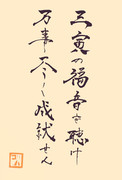 三寅の福音を聴け
万事尽く成就せん